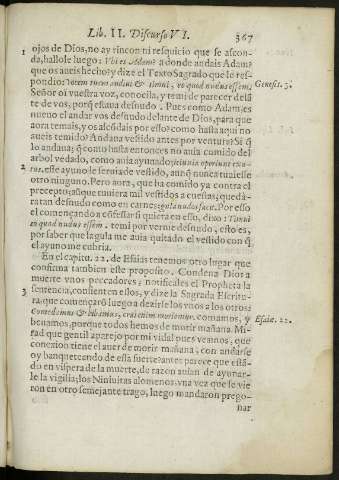 Lib. II. Discurso VI. 367
ojos de Dios, no ay rincon ni resquicio que se ascon-
da, hallole luego: Vbi es Adam? a donde andais Adam?
que os aueis hecho? y dize el Texto Sagrado que le res-
pondio: Vocem tuam audiui & timui, eo quod nudus essem,
Genes. 3.
Señor oi vuestra voz, conocila, y temi de parecer delã
te de vos, porq̃ estaua desnudo. Pues como Adam, es
nueuo el andar vos desnudo delante de Dios, para que
aora temais, y os alcõdais por esso? como hasta aqui no
aueis temido? Andaua vestido antes por ventura? Si q̃
lo andaua; q̃ como hasta entonces no auia comido del
arbol vedado, como auia ayunado
este ayuno le seruia de vestido, aunq̃ nunca tuuiesse
otro ninguno. Pero aora, que ha comido ya contra el
precepto, aũque tuuiera mil vestidos a cuestas, queda-
ratan desnudo como en carnes: gula nudos facit. Por esso
el començando a cõfessar si quiera en esso, dixo: Timui
eo quod nudus essem. temi por verme desnudo, esto es,
por saber que la gula me auia quitado el vestido con q̃
el ayuno me cubria.
En el capitu. 22. de Esaias tenemos otro lugar que
confirma tambien este proposito. Condena Dios a
muerte vnos pecadores; notificales el Propheta la
sentencia, consienten ellos, y dize la Sagrada Escritu-
ra, que começarõ luego a dezirse los vnos a los otros:
Comedamus & bibamus, cras enim moriemur. comamos, y
Esaiæ. 22.
beuamos, porque todos hemos de morir mañana. Mi-
rad que gentil aparejo por mi vida! pues veamos, que
conexion tiene el auer de morir mañana, con andarse
oy banqueteando de essa suerte? antes parece que estã-
do en vispera de la muerte, de razon auian de ayunar-
le la vigilia; los Niniuitas alomenos, vna vez que se vie
ron en otro semejante trago, luego mandaron prego-
nar
1
2
3